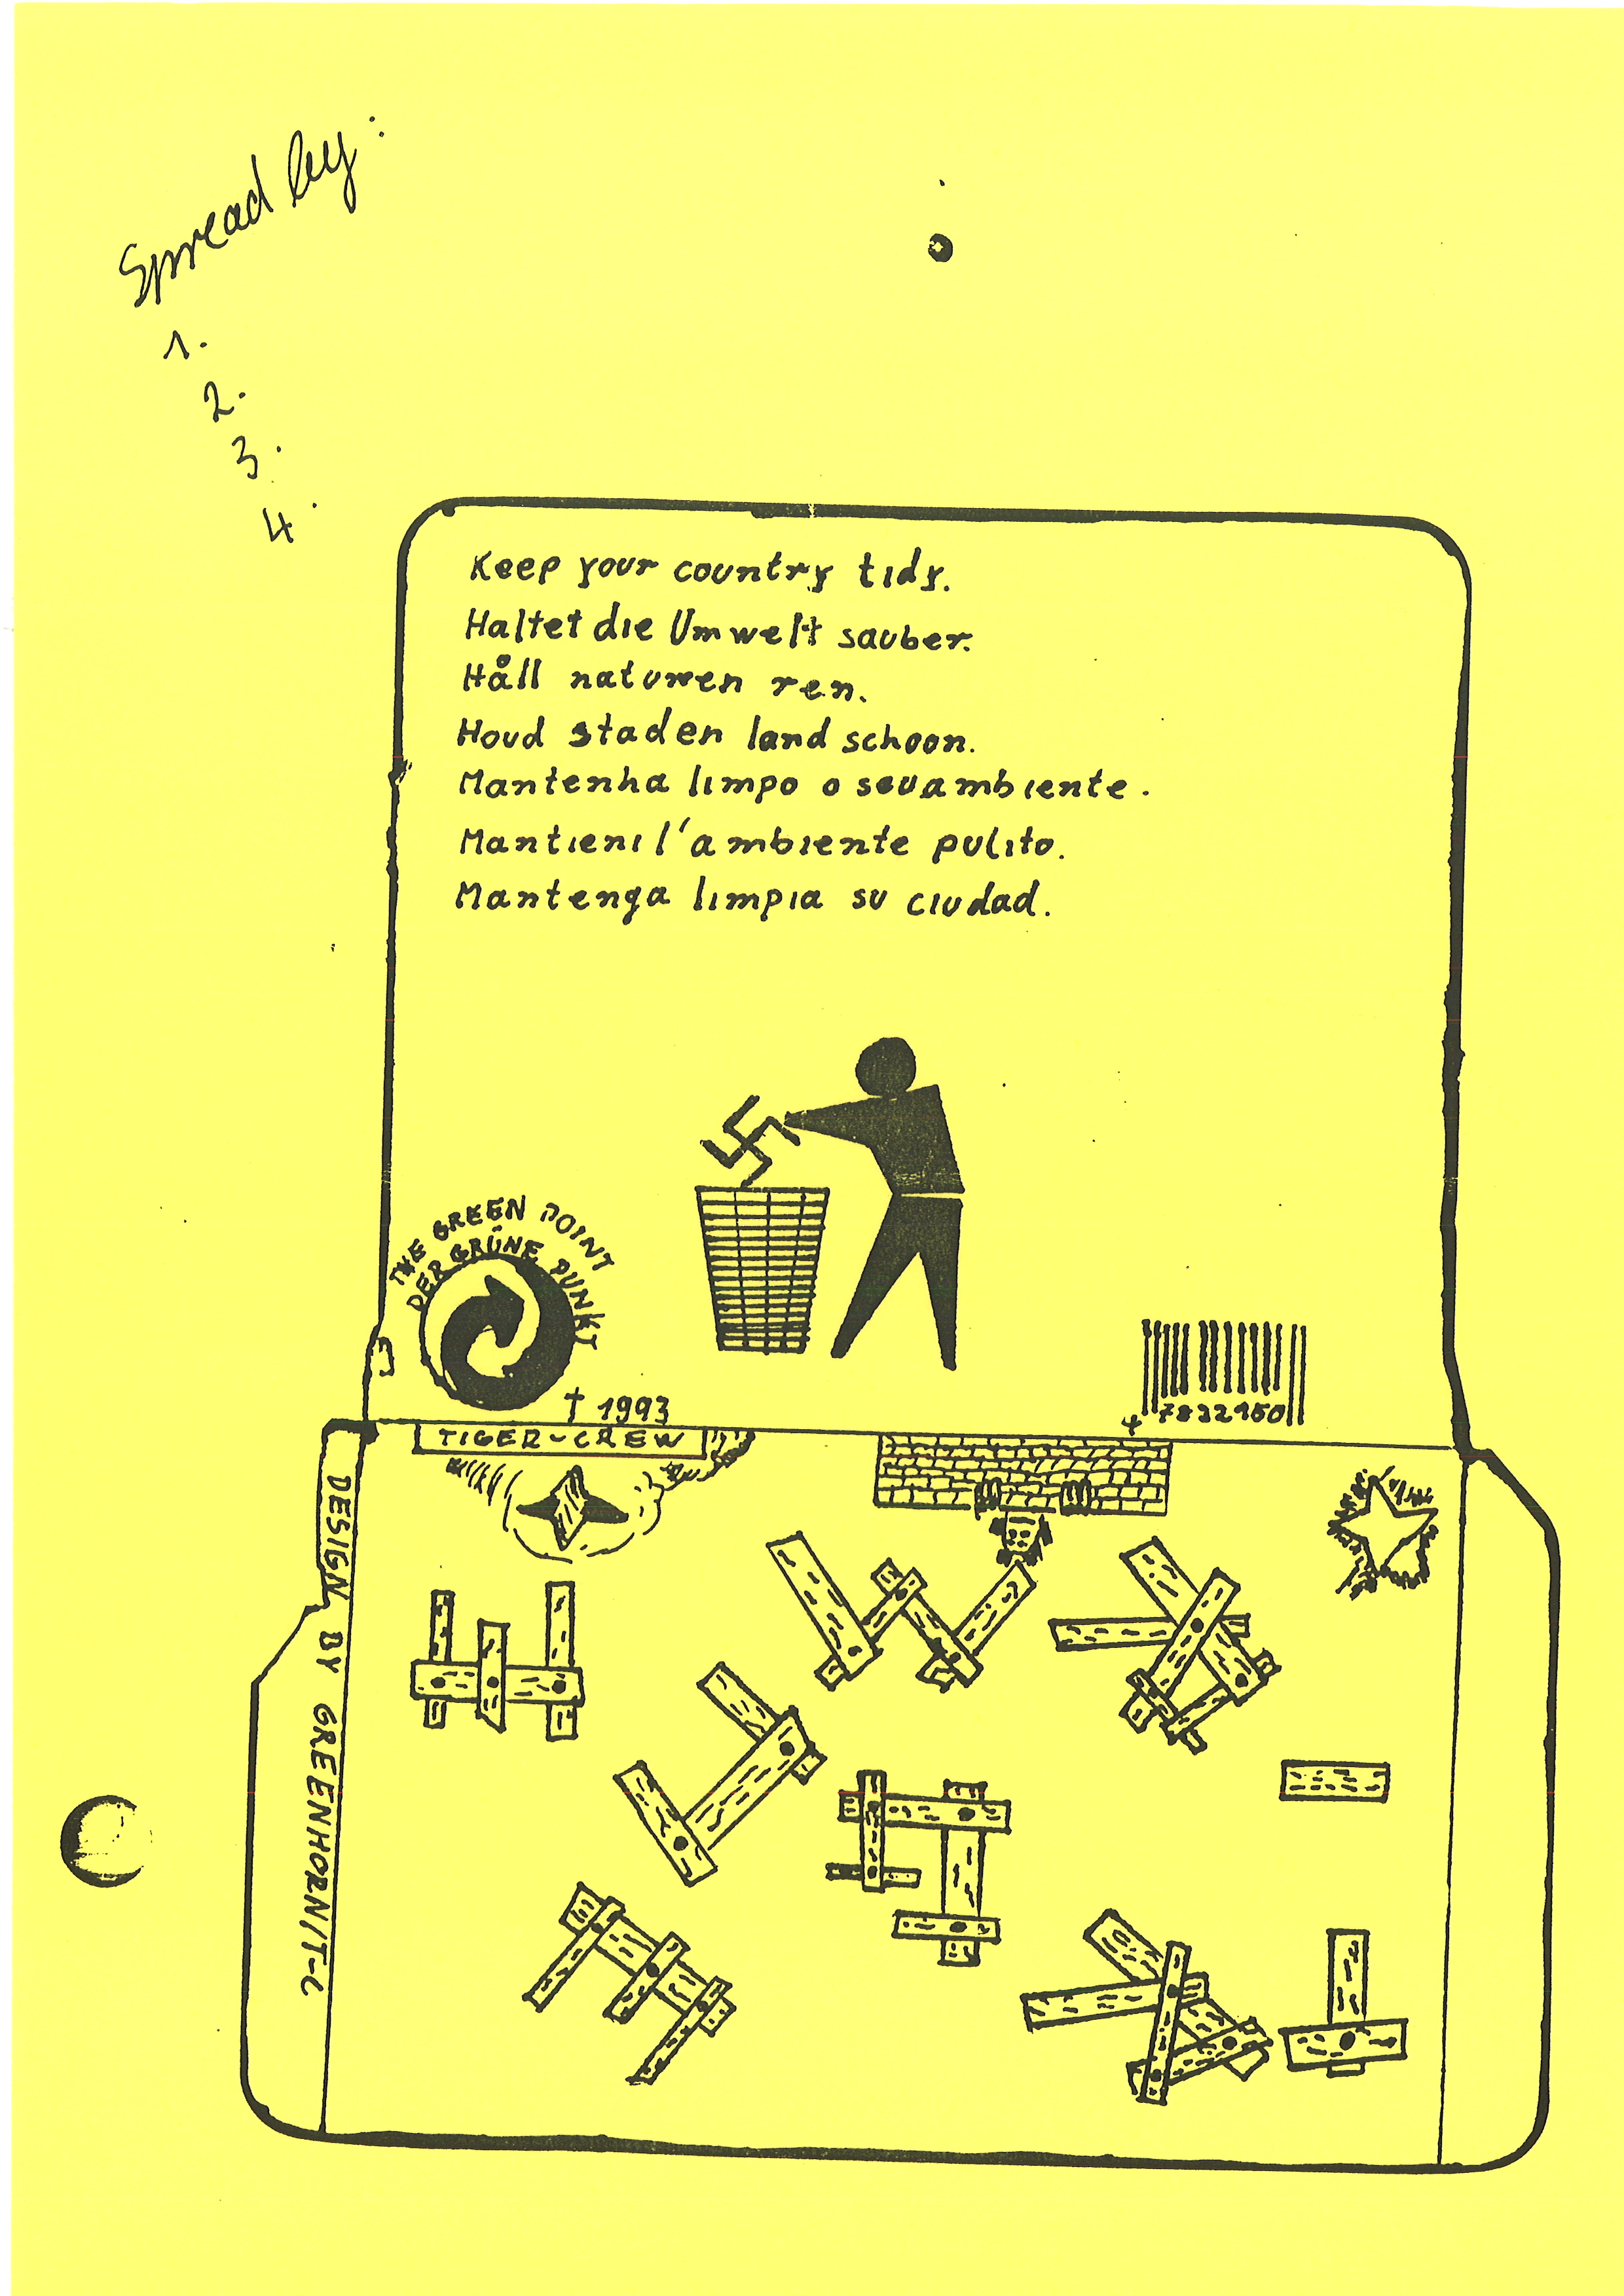 Spread by:
1.
2.
3.
4.
Keep your country tidy.
Haltet die Umwelt sauber.
Håll naturen ren.
Houd staden land schoon.
Mantenha limpo o seuambiente.
Mantieni l'ambiente pulito.
Mantenga limpia su ciudad.
THE GREEN POINT
DER GRÜNE PUNKT
† 1993
TIGER-CREW
DESIGN BY GREENHORN/T-C